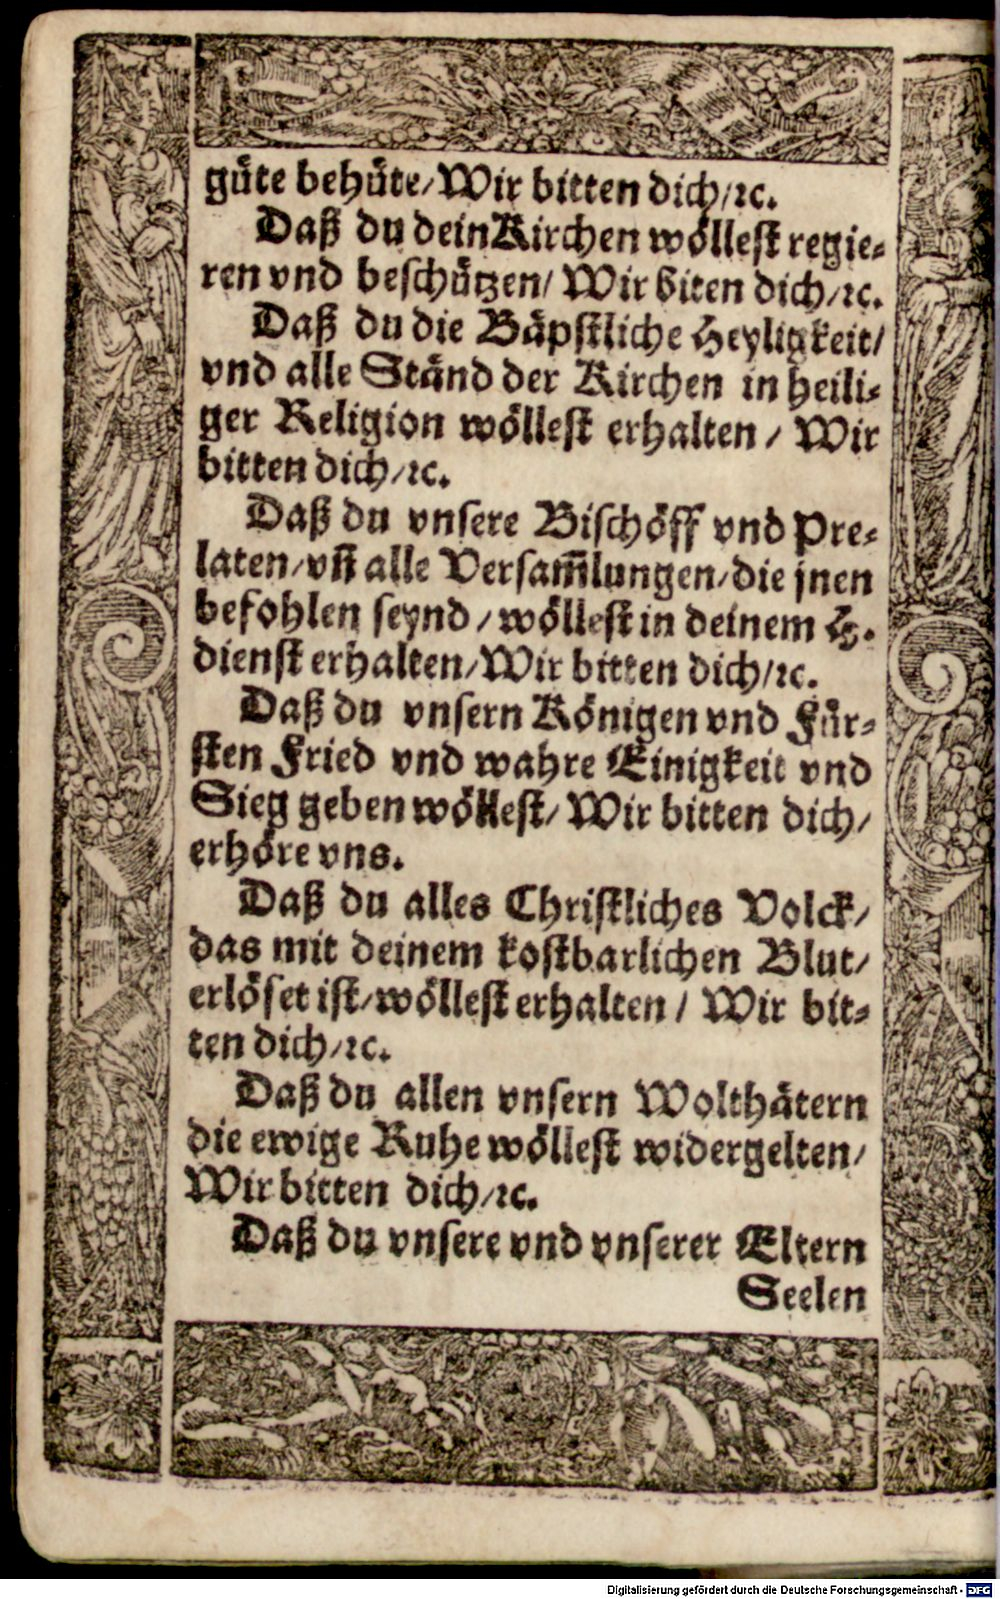 güte behüte/ Wir bitten dich/ ꝛc.
Daß du dein Kirchen wöllest regie⸗
ren vnd beschützen/ Wir biten dich/ ꝛc.
Daß du die Bäpstliche Heyligkeit/
vnd alle Ständ der Kirchen in heili⸗
ger Religion wöllest erhalten / Wir
bitten dich/ ꝛc.
Daß du vnsere Bischöff vnd Pre⸗
laten/ vñ alle Versam̃lungen/ die jnen
befohlen seynd / wöllest in deinem H.
dienst erhalten/ Wir bitten dich/ ꝛc.
Daß du vnsern Königen vnd Für⸗
sten Fried vnd wahre Einigkeit vnd
Sieg geben wöllest/ Wir bitten dich/
erhöre vns.
Daß du alles Christliches Volck/
das mit deinem kostbarlichen Blut/
erlöset ist/ wöllest erhalten / Wir bit⸗
ten dich/ ꝛc.
Daß du allen vnsern Wolthätern
die ewige Ruhe wöllest widergelten/
Wir bitten dich/ ꝛc.
Daß du vnsere vnd vnserer Eltern
Seelen
Digitalisierung gefördert durch die Deutsche Forschungsgemeinschaft - DFG